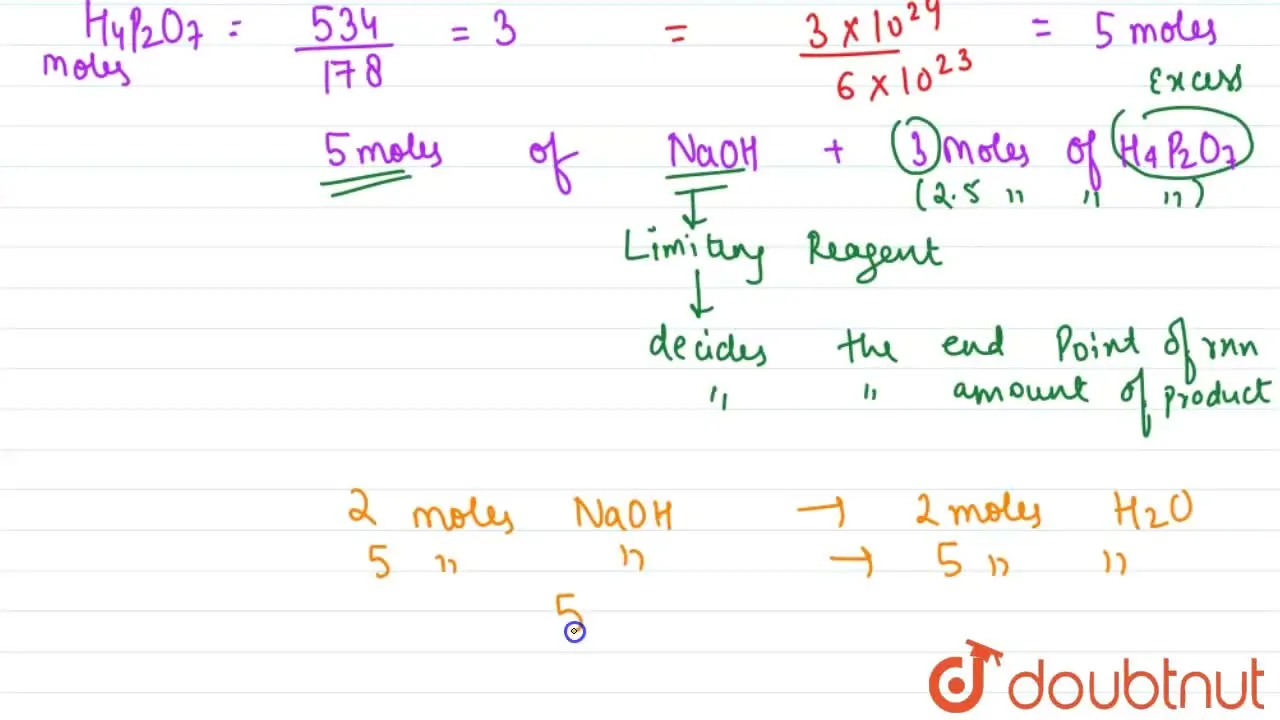 H4P2O7 = 534/178 = 3 = 3 × 10^24/6 × 10^23 = 5 moles
moles
Excess
5 moles of NaOH + 3 moles of H4P2O7
(2.5 " " ")
Limiting Reagent
decides the end Point of rxn
" " amount of product
2 moles NaOH → 2 moles H2O
5 " " → 5 " "
5
doubtnut